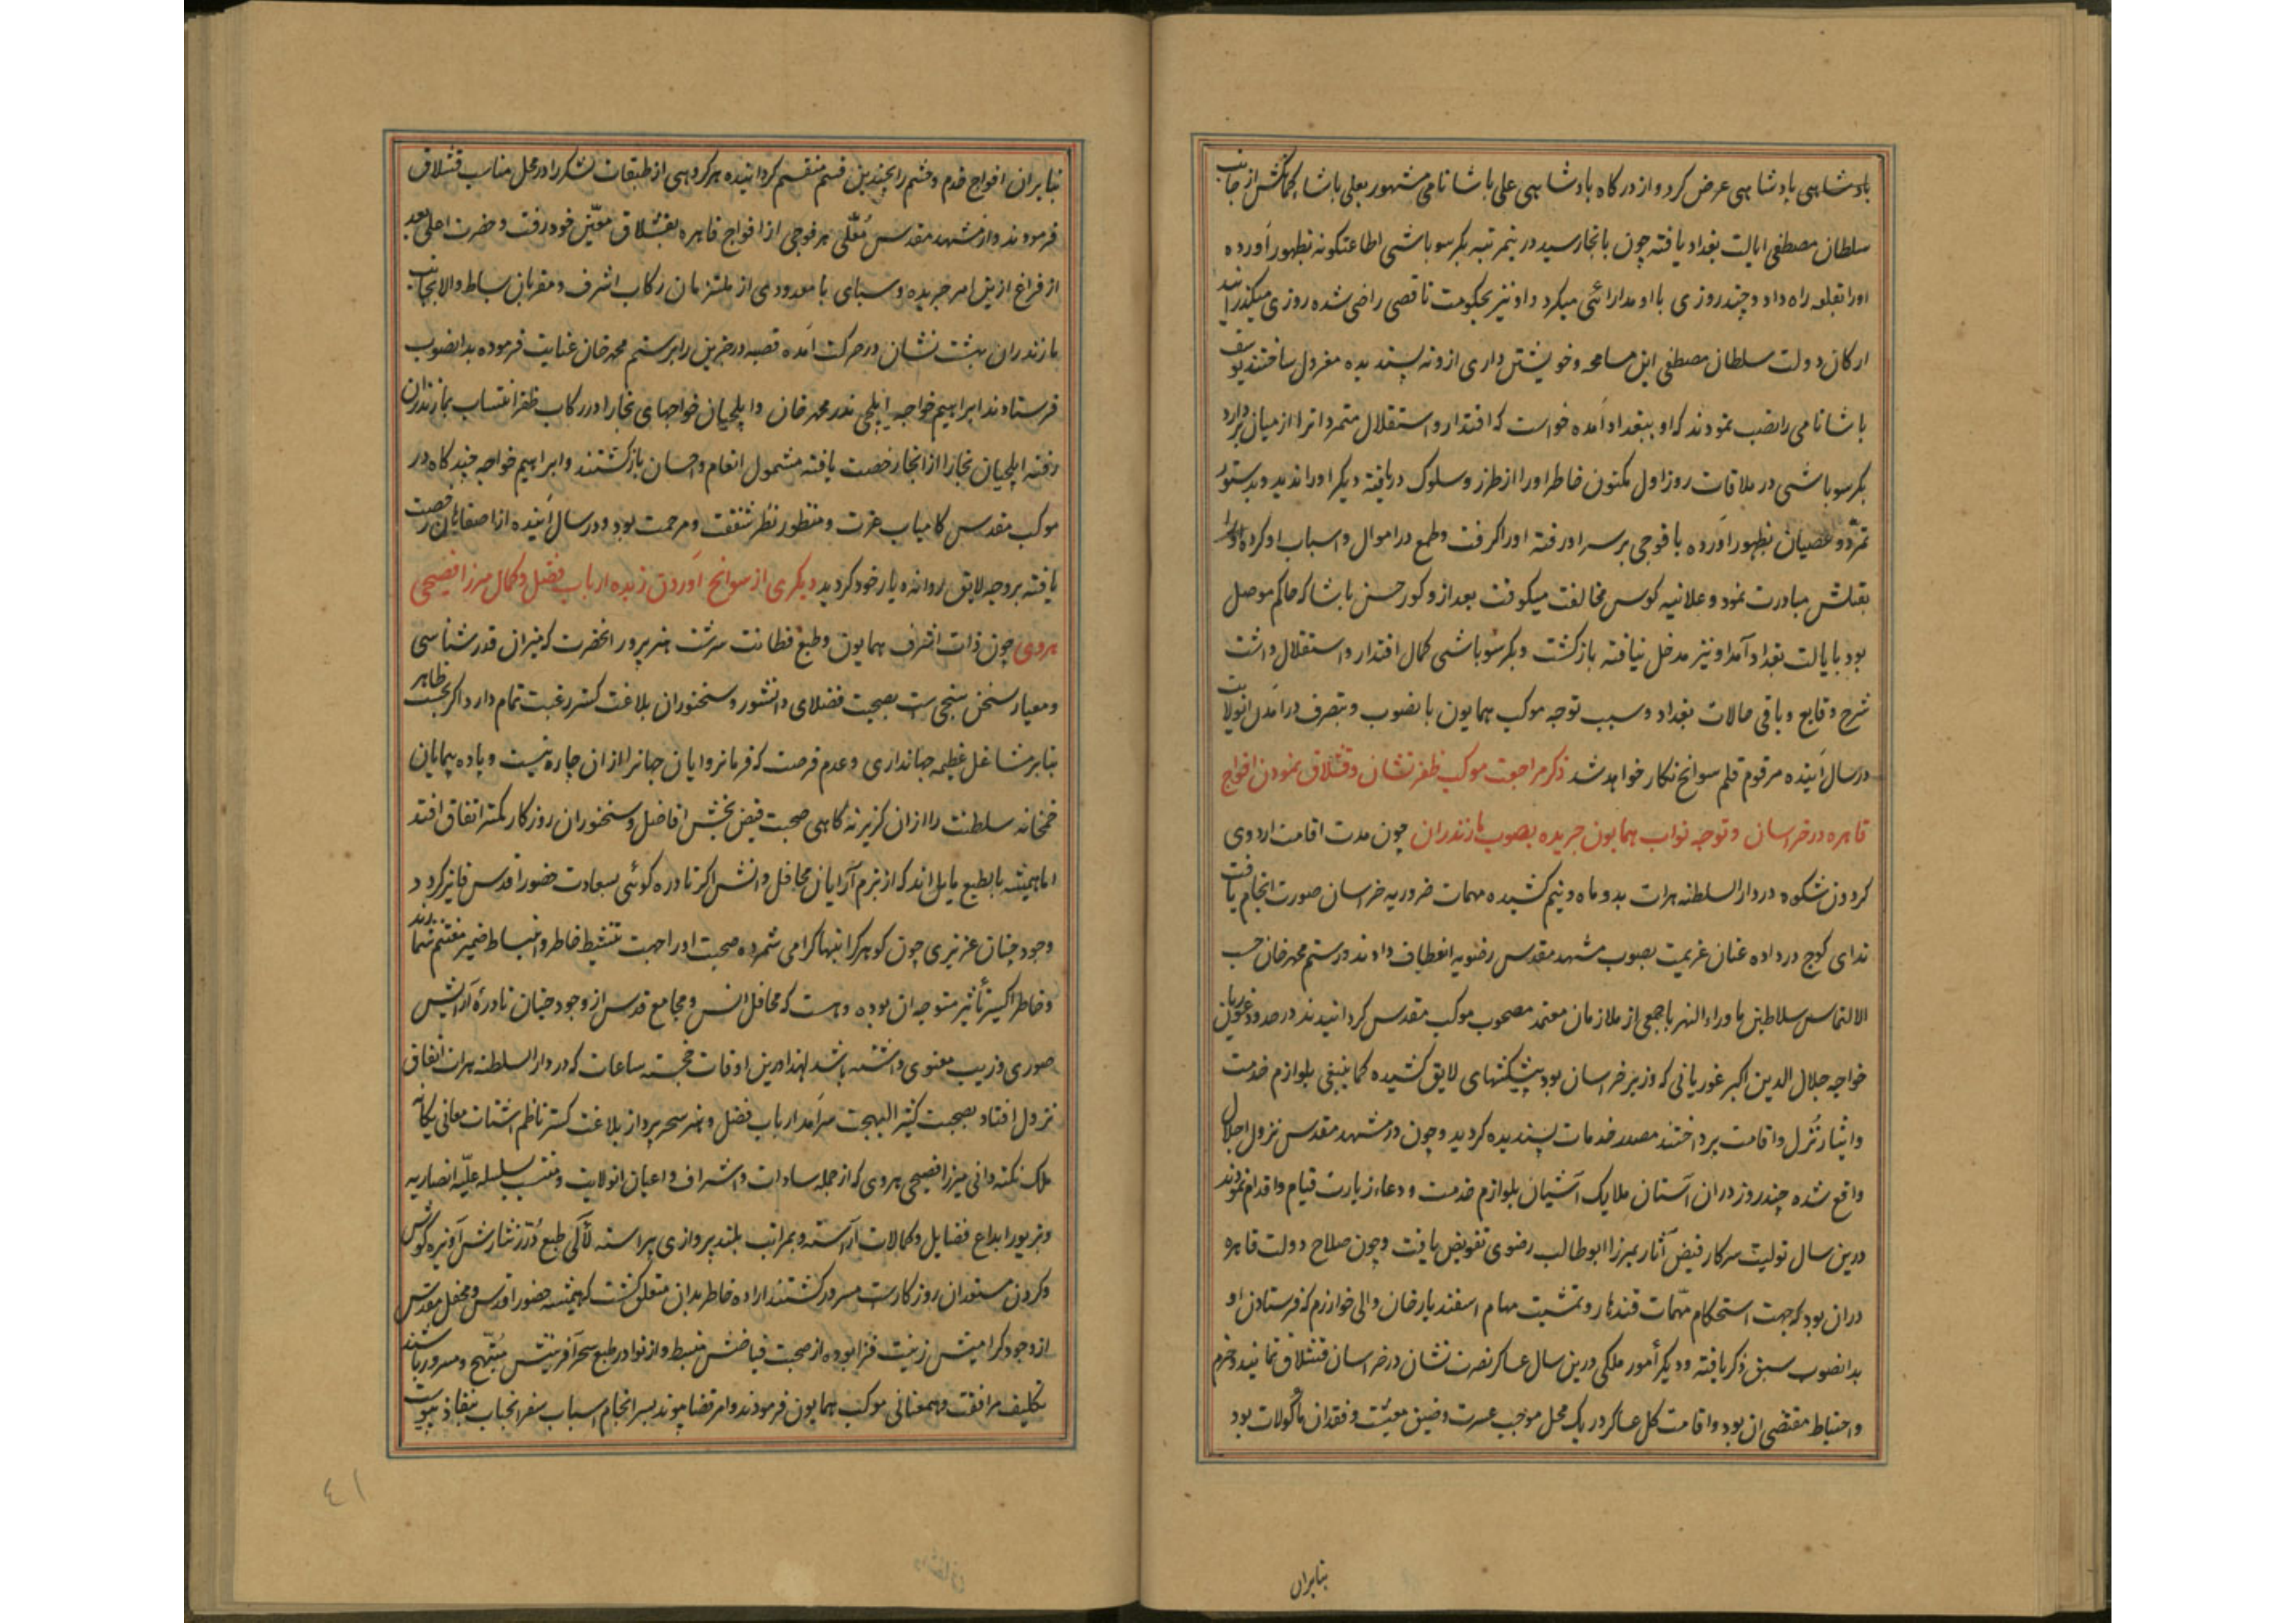 بادشاهی بادشاهی عرض کرد و از درکاه بادشاهی علی باشا نامی مشهور بعلی باشا از جانب
سلطان مصطفی ایالت بغداد یافته چون بانجا رسید درینمرتبه بکر سوباشی اطاعتکونه بظهور آورده
اورا بقلعه راه داد و چند روزی با او مدارائی میکرد و او نیز بحکومت ناقصی راضی شده روزی میکذرانید
ارکان دولت سلطان مصطفی این مسامحه و خویشتن داری ازو نه پسندیده معزول ساختند یوسف
باشا نامی را نصب نمودند که او ببغداد آمده خواست که اقتدار و استقلال متمردانرا از میان بردارد
بکر سوباشی در ملاقات روز اول مکنون خاطر اورا از طرز و سلوک دریافته دیکر اورا ندید و بدستور
تمرّد و عصیان بظهور آورده با فوجی بر سر او رفته اورا کرفت و طمع در اموال و اسباب او کرده
بقتلش مبادرت نمود و علانیه کوس مخالفت میکوفت بعد ازو کور حسن باشا که حاکم موصل
بود بایالت بغداد آمد او نیز مدخل نیافته بازکشت و بکر سوباشی کمال اقتدار و استقلال داشت
شرح وقایع و باقی حالات بغداد و سبب توجه موکب همایون بانصوب و بتصرف درآمدن انولایت
در سال آینده مرقوم قلم سوانح نکار خواهد شد ذکر مراجعت موکب ظفرنشان و قشلاق نمودن افواج
قاهره در خراسان و توجه نواب همایون جریده بصوب مازندران چون مدت اقامت اردوی
کردون شکوه در دارالسلطنه هرات بدو ماه و نیم کشیده مهمات ضروریه خراسان صورت انجام یافت
ندای کوج در داده عنان عزیمت بصوب مشهد مقدس رضویه انعطاف دادند و رستم محمد خان حسب
الالتماس سلاطین ماوراءالنهر با جمعی از ملازمان معتمد مصحوب موکب مقدس کردانیدند در حدود غوریان
خواجه جلال الدین اکبر غوریانی که وزیر خراسان بود پیشکشهای لایق کشیده کما ینبغی بلوازم خدمت
و ایثار نُزُل و اقامت پرداختند مصدر خدمات پسندیده کردید و چون در مشهد مقدس نزول اجلال
واقع شده چند روز دران آستان ملایک آشیان بلوازم خدمت و دعاء زیارت قیام و اقدام نمودند
درین سال تولیت سرکار فیض آثار بمیرزا ابوطالب رضوی تفویض یافت و چون صلاح دولت قاهره
دران بود که جهت استحکام مهمّات قندهار و تمشیت مهام اسفندیار خان والی خوارزم که فرستادن او
بدانصوب سبق ذکر یافته و دیکر أمور ملکی درین سال عساکر نصرت نشان در خراسان قشلاق نمایند و حزم
و احتیاط مقتضی ان بود و اقامت کل عساکر در یک محل موجب عسرت و ضیق معیشت و فقدان مأکولات بود
بنابران
بنابران افواج خدم و حشم را بچندین قسم منقسم کردانیده هر کروهی از طبقات لشکر را در محل مناسب قشلاق
فرمودند و از مشهد مقدس مُعلّی هر فوجی از افواج قاهره بقشلاق معیّن خود رفت و حضرت اعلی بعد
از فراغ ازین امر جریده و سبای با معدودی از ملتزمان رکاب اشرف و مقربان بساط والا بجانب
مازندران بهشت نشان در حرکت آمده قصبه درجزین را برستم محمد خان عنایت فرموده بدانصوب
فرستادند ابراهیم خواجه ایلچی ندر محمد خان و ایلچیان خواجهای بخارا در رکاب ظفر انتساب بمازندران
رفته ایلچیان بخارا از انجا رخصت یافته مشمول انعام و احسان بازکشتند و ابراهیم خواجه چند کاه در
موکب مقدس کامیاب عزت و منظور نظر شفقت و مرحمت بود و در سال آینده از اصفاهان رخصت
یافته بر وجه لایق روانه دیار خود کردید دیکری از سوانح آوردن زبده ارباب فضل و کمال میرزا فصیحی
هروی چون ذات اشرف همایون و طبع فطانت سرشت هنرپرور انحضرت که میزان قدرشناسی
و معیار سخن سنجی است بصحبت فضلای دانشور و سخنوران بلاغت کستر رغبت تمام دارد اکر بحسب ظاهر
بنابر مشاغل عظیمه جهانداری و عدم فرصت که فرمانروایان جهانرا ازان چاره نیست و باده پیمایان
خمخانه سلطنت را ازان کزیر نه کاهی صحبت فیض بخش افاضل و سخنوران روزکار کمتر اتفاق افتد
اما همیشه بالطبع مایل اند که از بزم آرایان محافل دانش اکر نادره کوئی بسعادت حضور اقدس فایز کردد
وجود چنان عزیزی چون کوهر کرانبها کرامی شمرده صحبت اورا جهت تنشیط خاطر و انبساط ضمیر مغتنم شمارند
و خاطر اکسیر تأثیر متوجه ان بوده و هست که محافل انس و مجامع قدس از وجود چنان نادرهٔ آرایش
صوری و زیب معنوی داشته باشد لهذا درین اوقات خجسته ساعات که در دارالسلطنه هرات اتفاق
نزول افتاد بصحبت کثیر البهجت سرآمد ارباب فضل و هنر سحرپرداز بلاغت کستر ناظم اشتات معانی یکتای
ملک نکته دانی میرزا فصیحی هروی که از جمله سادات و اشراف و اعیان انولایت و منتسب بسلسله علیّه انصاریه
و بزیور ابداع فضایل و کمالات آراسته و بمراتب بلندپروازی پیراسته لآلی طبع دُرر نثارش آویزه کوش
و کردن مستعدان روزکارست مسرور کشتند اراده خاطر بدان متعلق کشت که همیشه حضور اقدس و محفل مقدس
از وجود کرامیش زینت فزا بوده از صحبت فیاضش منبسط و از نوادر طبع سحرآفرینش مُبتهج و مسرور باشند
تکلیف مرافقت و همعنانی موکب همایون فرمودند و امر قضا پیوند بسرانجام اسباب سفر انجناب بنفاذ پیوست
٤١